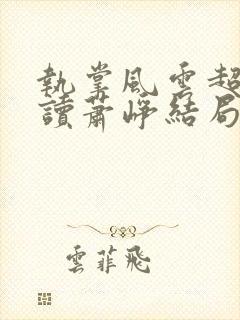 執掌風雲超
讀蕭崢結局
雲菲飛